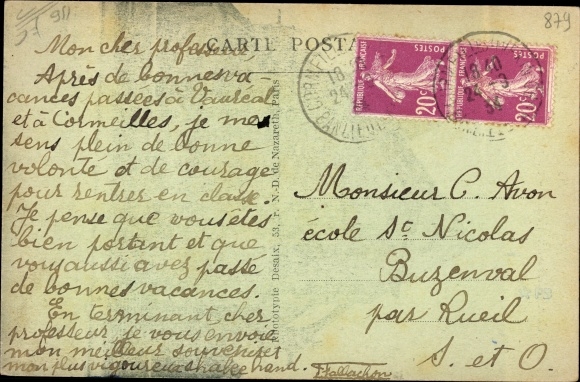 911
879
CARTE POSTA
Mon cher professeur,
Après de bonnes va-
cances passées à Vauréal
et à Cormeilles, je me
sens plein de bonne
volonté et de courage
pour rentrer en classe.
Je pense que vous êtes
bien portant et que
vous aussi avez passé
de bonnes vacances.
En terminant cher
professeur, je vous envoie
mon meilleur souvenir et
mon plus vigoureux shake hand.
Phototypie Desaix, 53, r. N.-D. de Nazareth, Paris
POSTES
REPUBLIQUE FRANÇAISE
20c
POSTES
REPUBLIQUE FRANÇAISE
20c
Monsieur C. Avon
école St Nicolas
Buzenval
par Rueil
S. et O.